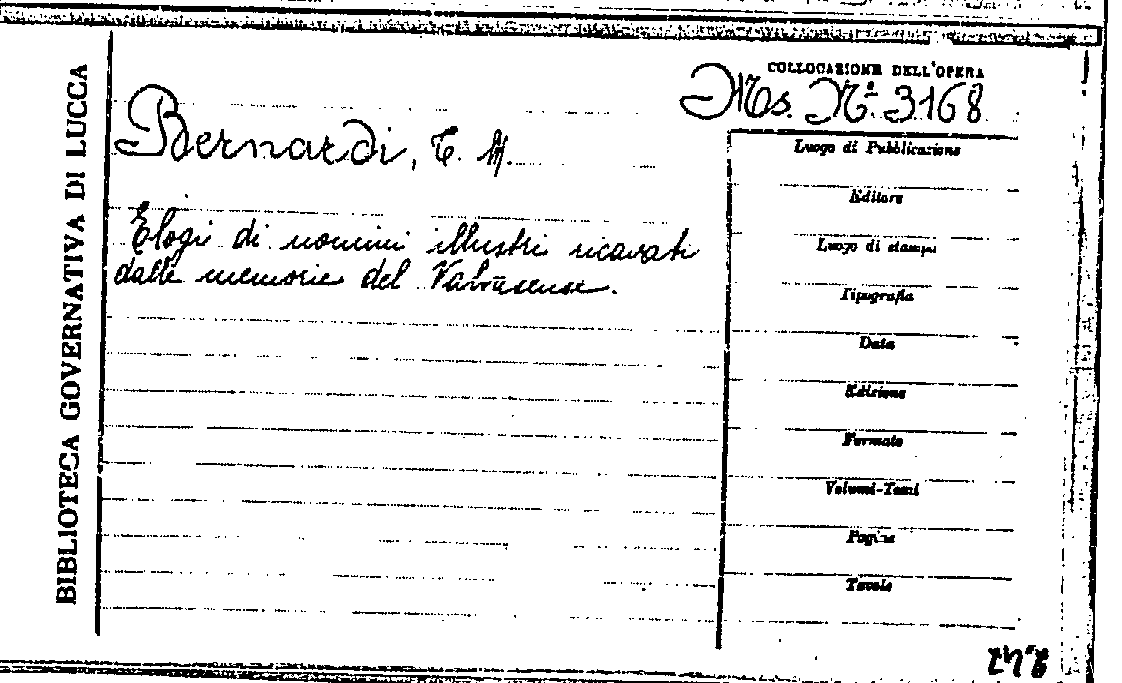 BIBLIOTECA GOVERNATIVA DI LUCCA
COLLOCAZIONE DELL'OPERA
Ms. N.º 3168
Bernardi, T. M.
Elogi di uomini illustri ricavati
dalle memorie del
Luogo di Pubblicazione
Editore
Luogo di stampa
Tipografia
Data
Edizione
Formato
Volumi-Tomi
Pagine
Tavole